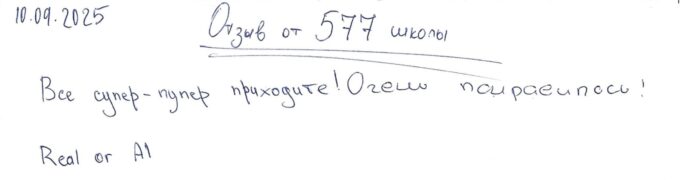 10.09.2025
Отзыв от 577 школы
Все супер-пупер приходите! Очень понравилось!
Real or AI